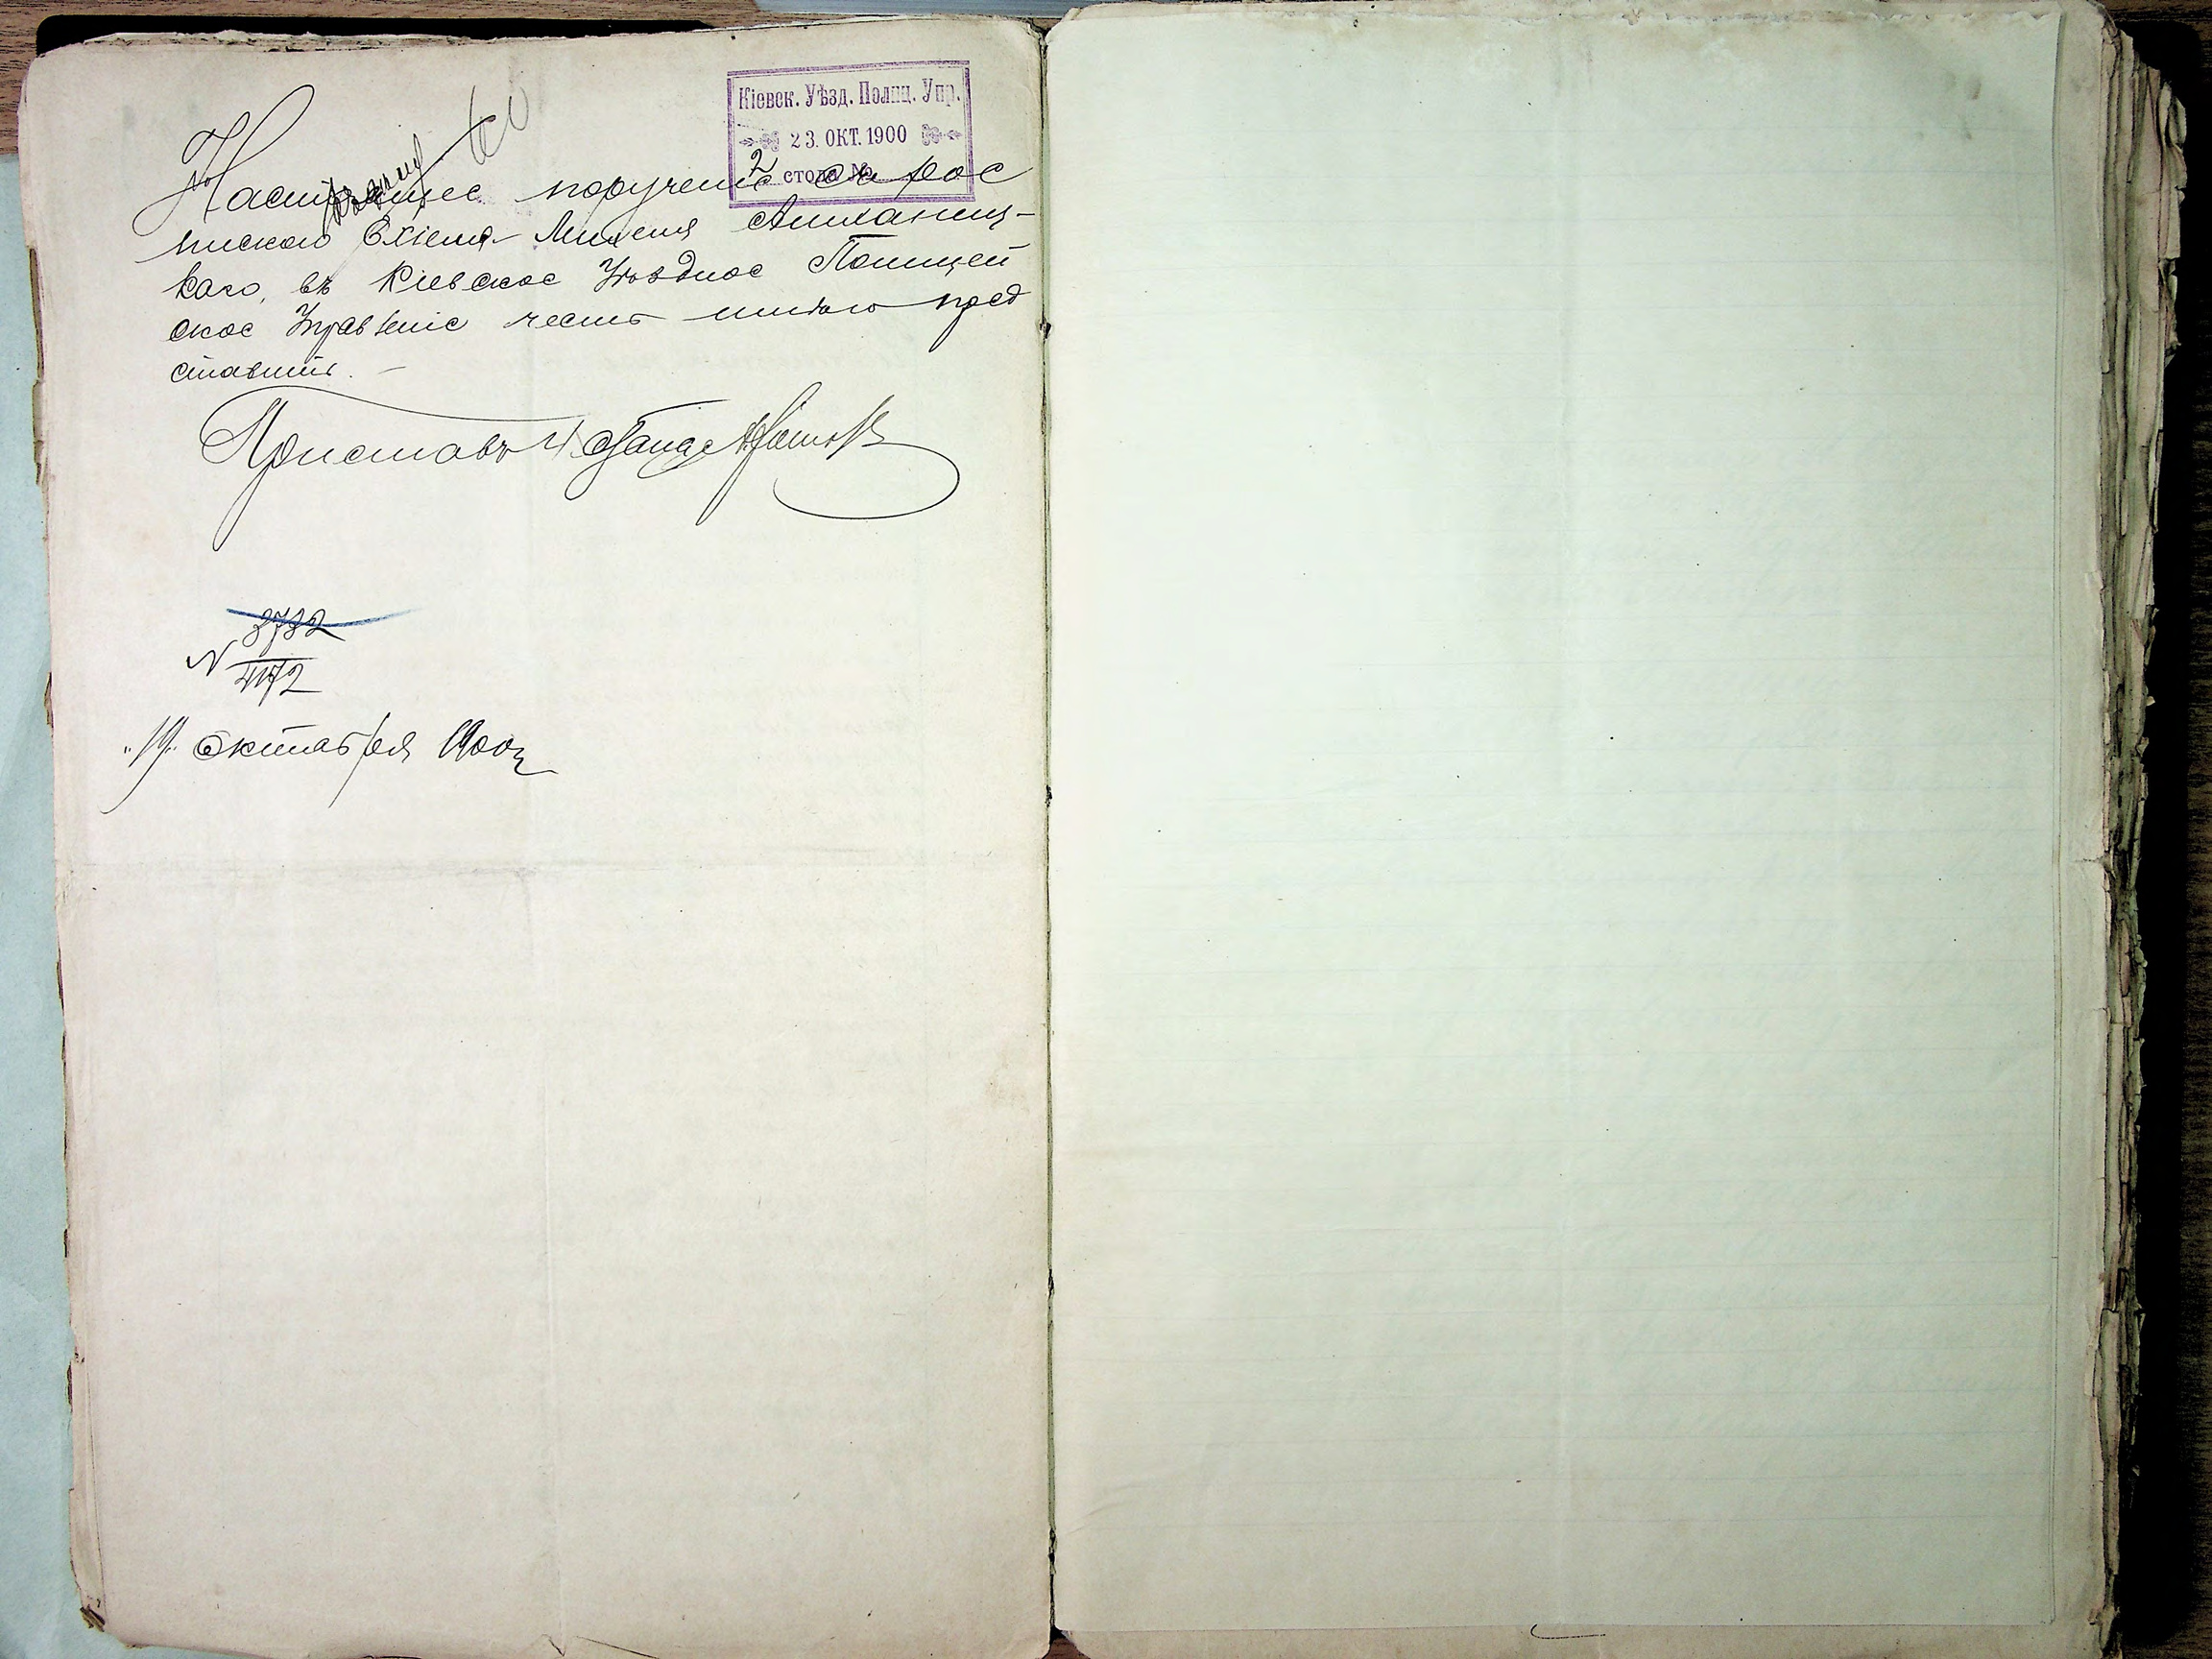 Кіевск. Уѣзд. Полиц. Упр.
23. ОКТ. 1900
2 стола №
Настоящее порученіе съ рос
пискою Ехіеля-Михеля
каго, въ Кіевское Уѣздное Полицей
ское Управленіе честь имѣю пред
ставить. –
Приставъ 4 Стана
3732
N 4172
"19" октября 1900 г